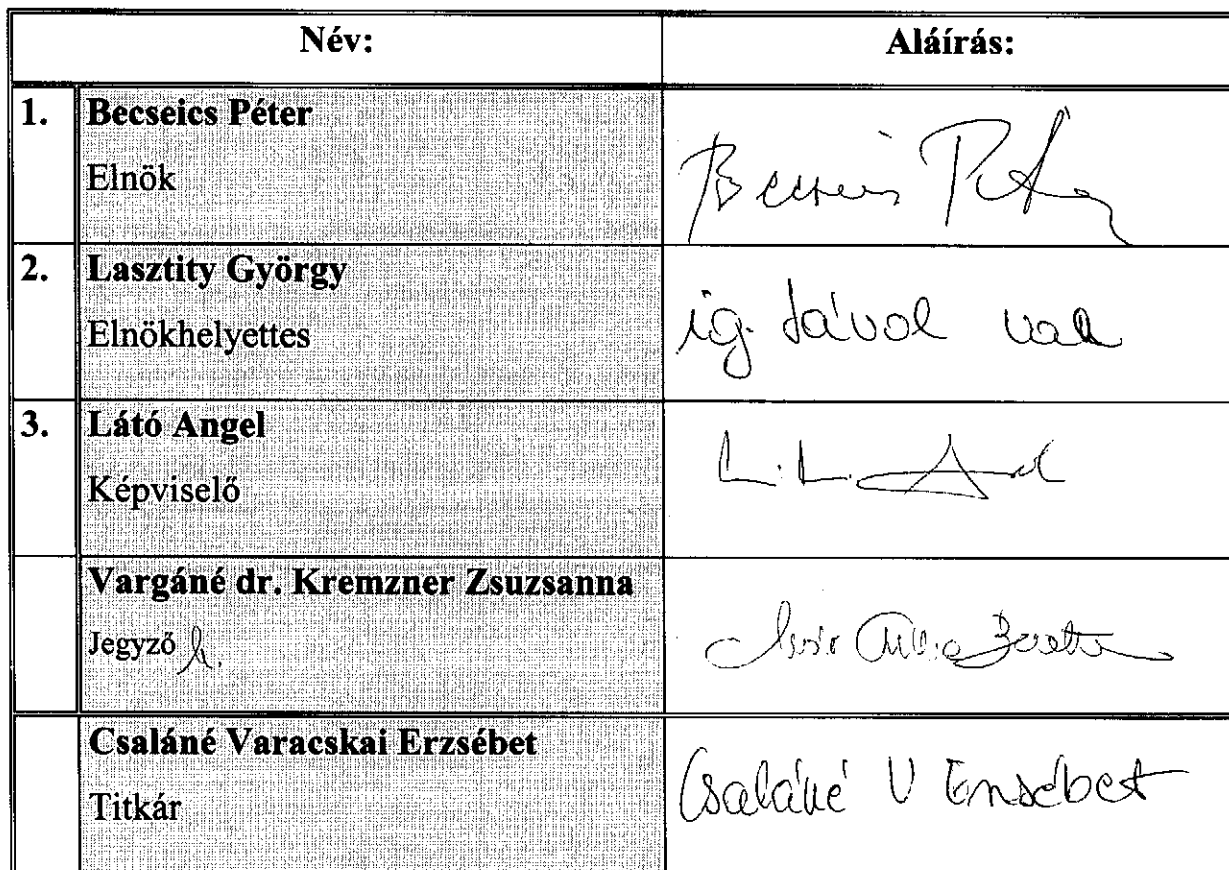 Név: Aláírás:
1. Becseics Péter
Elnök
Becseics Péter
2. Lasztity György
Elnökhelyettes
ig. távol van
3. Látó Angel
Képviselő
L. L. Angel
Vargáné dr. Kremzner Zsuzsanna
Jegyző h.
Csaláné Varacskai Erzsébet
Titkár
Csaláné V Erzsébet